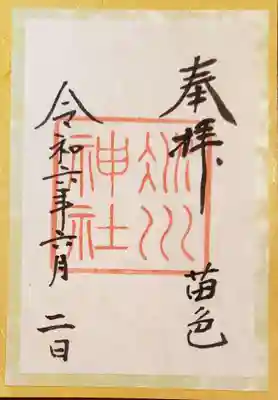 奉拝
苗色
氷川
神社
令和六年六月二日